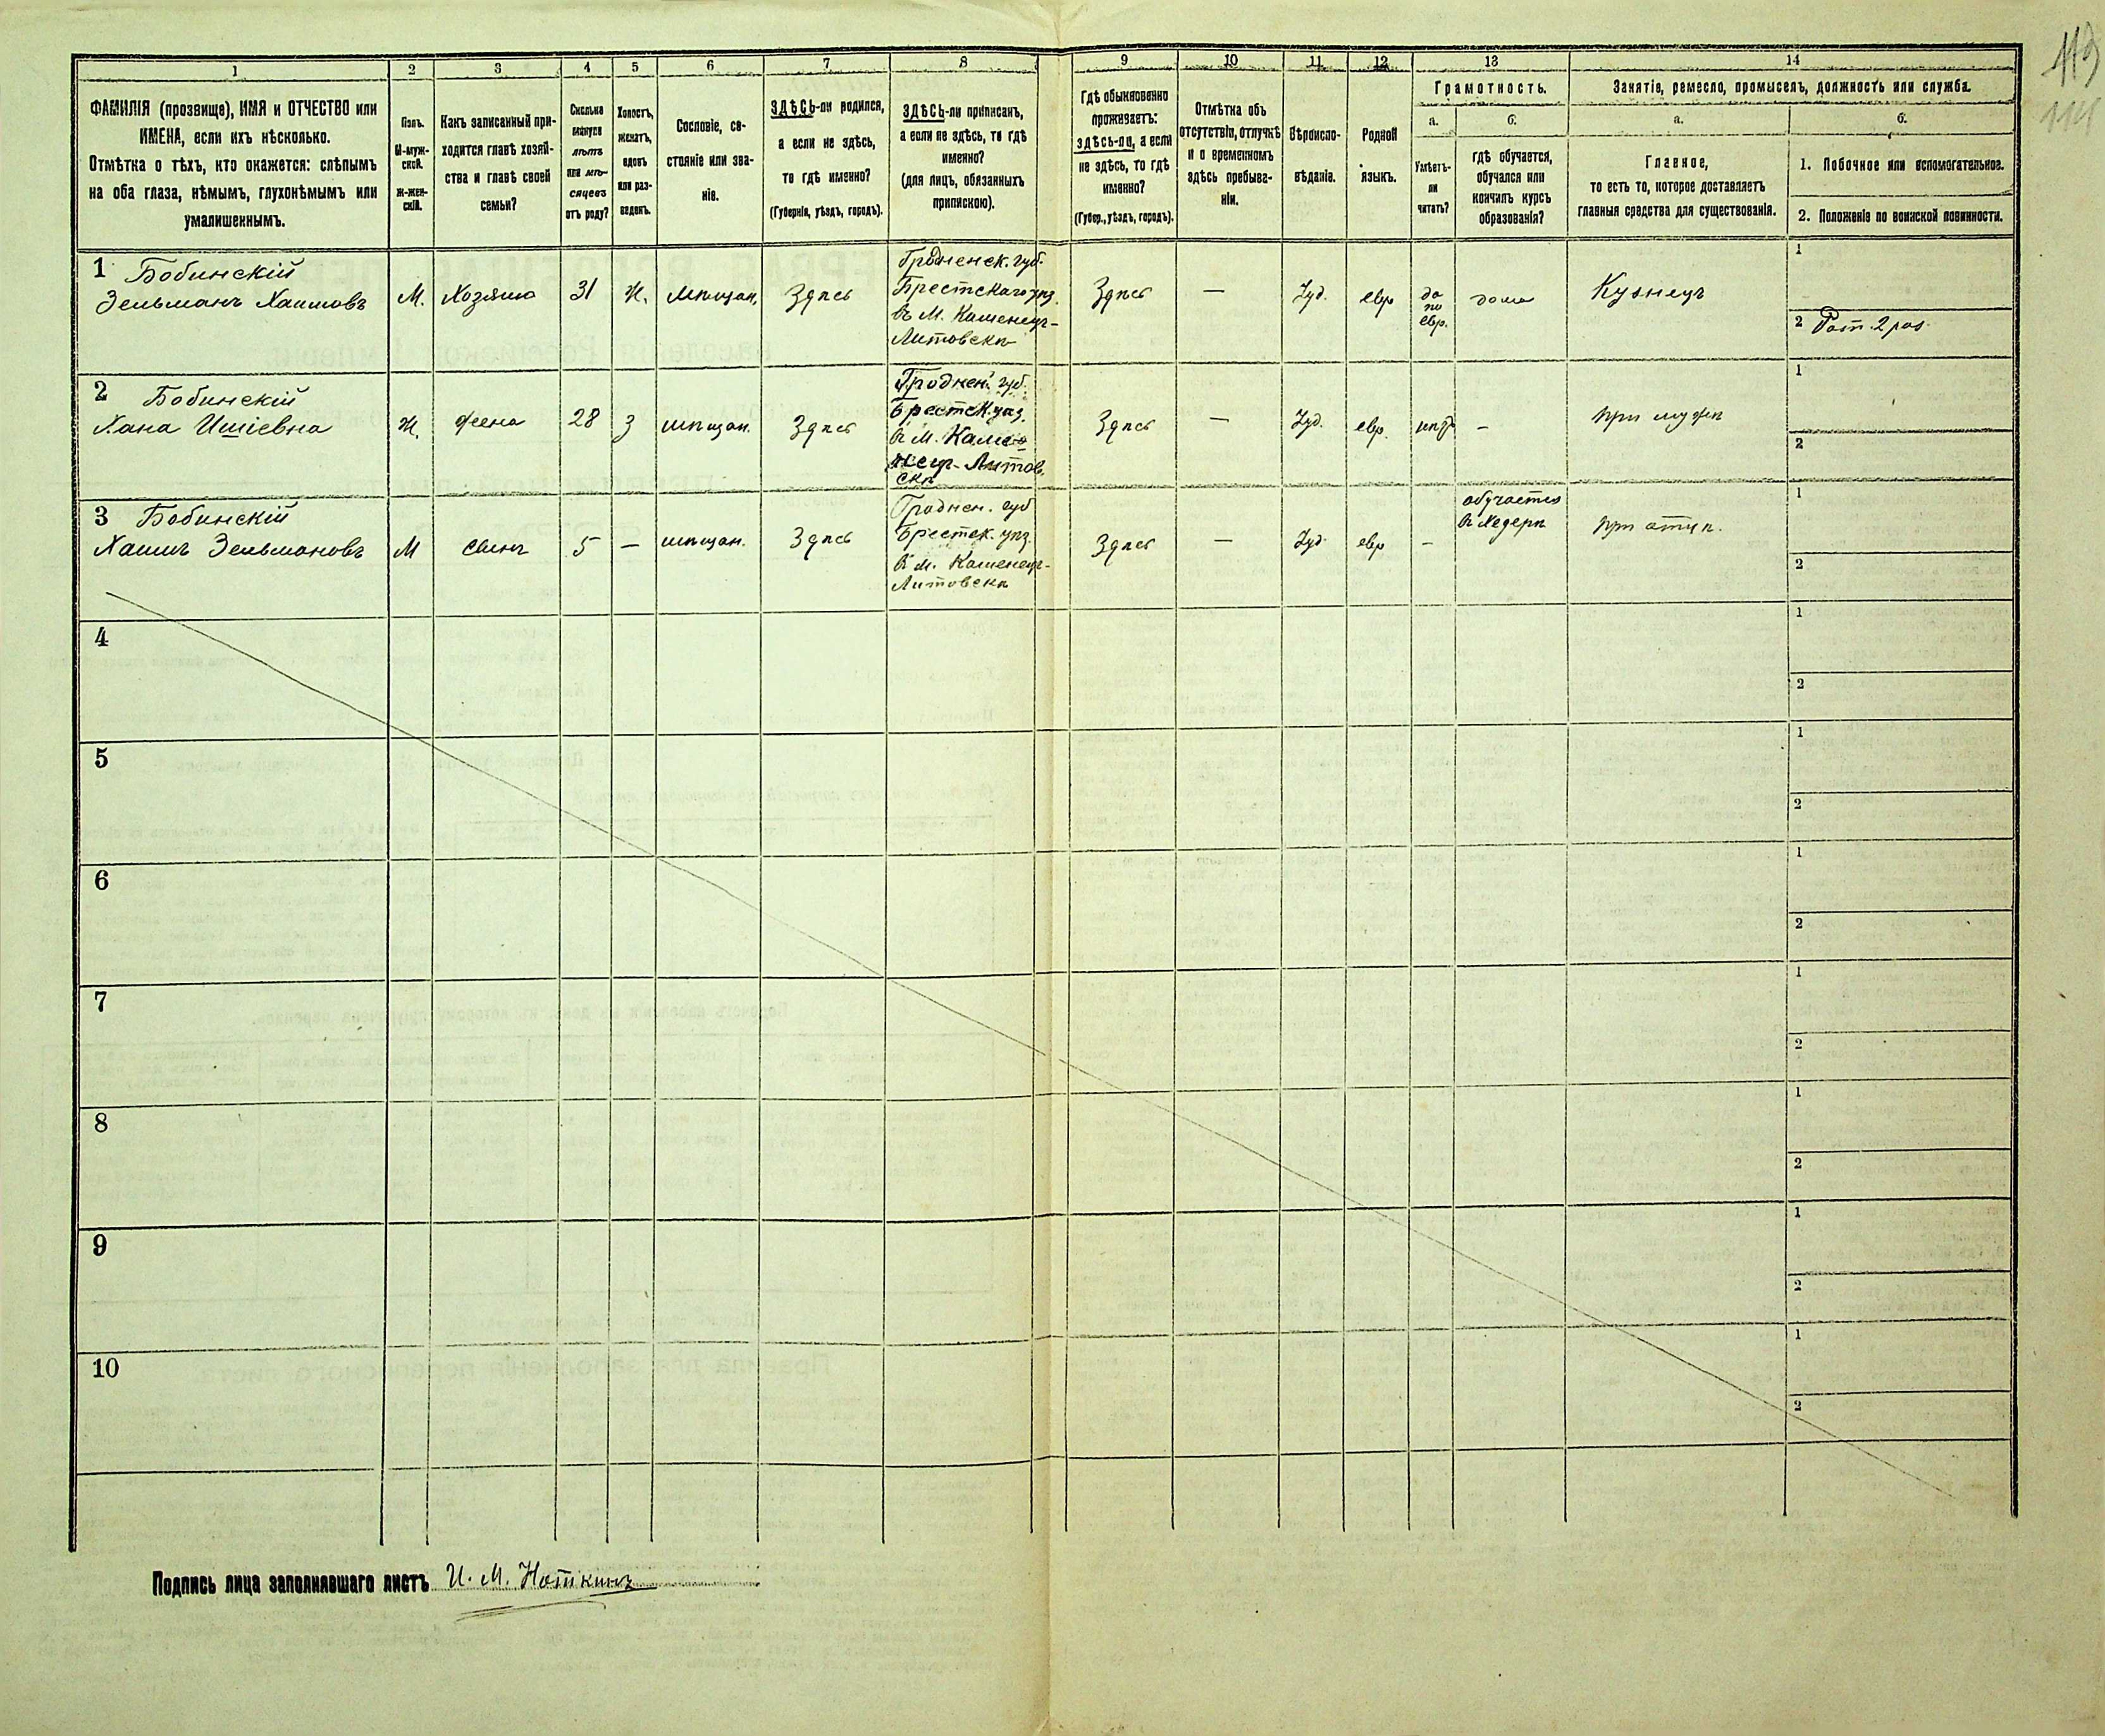 113
114
1
2
3
4
5
6
7
8
9
10
11
12
13
14
ФАМИЛІЯ (прозвище), ИМЯ и ОТЧЕСТВО или
ИМЕНА, если ихъ нѣсколько.
Отмѣтка о тѣхъ, кто окажется: слѣпымъ
на оба глаза, нѣмымъ, глухонѣмымъ или
умалишеннымъ.
Полъ.
М-муж-
ской.
Ж-жен-
скій.
Какъ записанный при-
ходится главѣ хозяй-
ства и главѣ своей
семьи?
Сколько
минуло
лѣтъ
или мѣ-
сяцевъ
отъ роду?
Холостъ,
женатъ,
вдовъ
или раз-
веденъ.
Сословіе, со-
стояніе или зва-
ніе.
ЗДѢСЬ-ли родился,
а если не здѣсь,
то гдѣ именно?
(Губернія, уѣздъ, городъ).
ЗДѢСЬ-ли приписанъ,
а если не здѣсь, то гдѣ
именно?
(для лицъ, обязанныхъ
припискою).
Гдѣ обыкновенно
проживаетъ:
здѣсь-ли, а если
не здѣсь, то гдѣ
именно?
(Губер., уѣздъ, городъ).
Отмѣтка объ
отсутствіи, отлучкѣ
и о временномъ
здѣсь пребыва-
ніи.
Вѣроиспо-
вѣданіе.
Родной
языкъ.
Грамотность.
а.
Умѣетъ-
ли
читать?
б.
гдѣ обучается,
обучался или
кончилъ курсъ
образованія?
Занятіе, ремесло, промыселъ, должность или служба.
а.
Главное,
то есть то, которое доставляетъ
главныя средства для существованія.
б.
1. Побочное или вспомогательное.
2. Положеніе по воинской повинности.
1 Бобинскій
Зельманъ Хаимовъ
М.
Хозяинъ
31
Ж.
Мѣщан.
Здѣсь
Гродненск. губ.
Брестскаго уѣз.
въ М. Каменецъ-
Литовскѣ
Здѣсь
—
Іуд.
евр
да
по
евр.
дома
Кузнецъ
1
2 Рат. 2 раз.
2 Бобинскій
Хана Ишіевна
Ж.
жена
28
З
мѣщан.
Здѣсь
Гроднен. губ.
Брестск. уѣз.
въ М. Каме-
нецъ-Литов.
скѣ
Здѣсь
—
Іуд.
евр.
нѣтъ
—
при мужѣ
1
2
3 Бобинскій
Хаимъ Зельмановъ
М
сынъ
5
—
мѣщан.
Здѣсь
Гроднен. губ
Брестск. уѣз.
въ м. Каменецъ-
Литовскѣ
Здѣсь
—
Іуд.
евр
—
обучается
въ хедерѣ
при отцѣ.
1
2
4
1
2
5
1
2
6
1
2
7
1
2
8
1
2
9
1
2
10
1
2
Подпись лица заполнявшаго листъ И. М. Ноткинъ